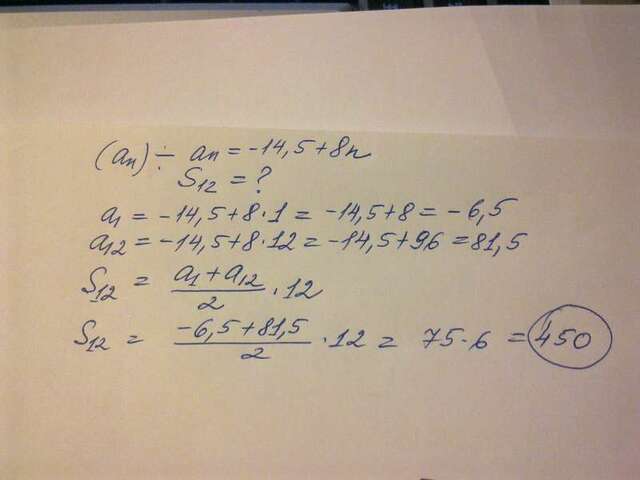 (an) ÷ an = -14,5+8n
S12 = ?
a1 = -14,5+8·1 = -14,5+8 = -6,5
a12 = -14,5+8·12 = -14,5+96 = 81,5
S12 = a1+a12/2 ·12
S12 = -6,5+81,5/2 ·12 = 75·6 = 450